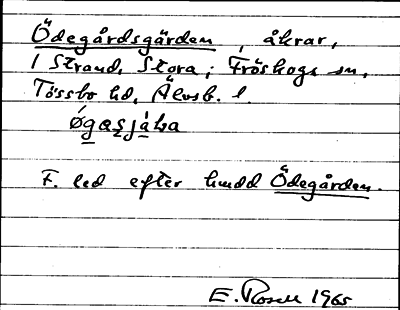 Ödegårdsgärden, åkrar,
1 Strand, Stora; Fröskogs sn,
Tössbo hd, Älvsb. l.
øgas̨jáɫa
F. led efter hmdd Ödegården.
E. Rosell 1965